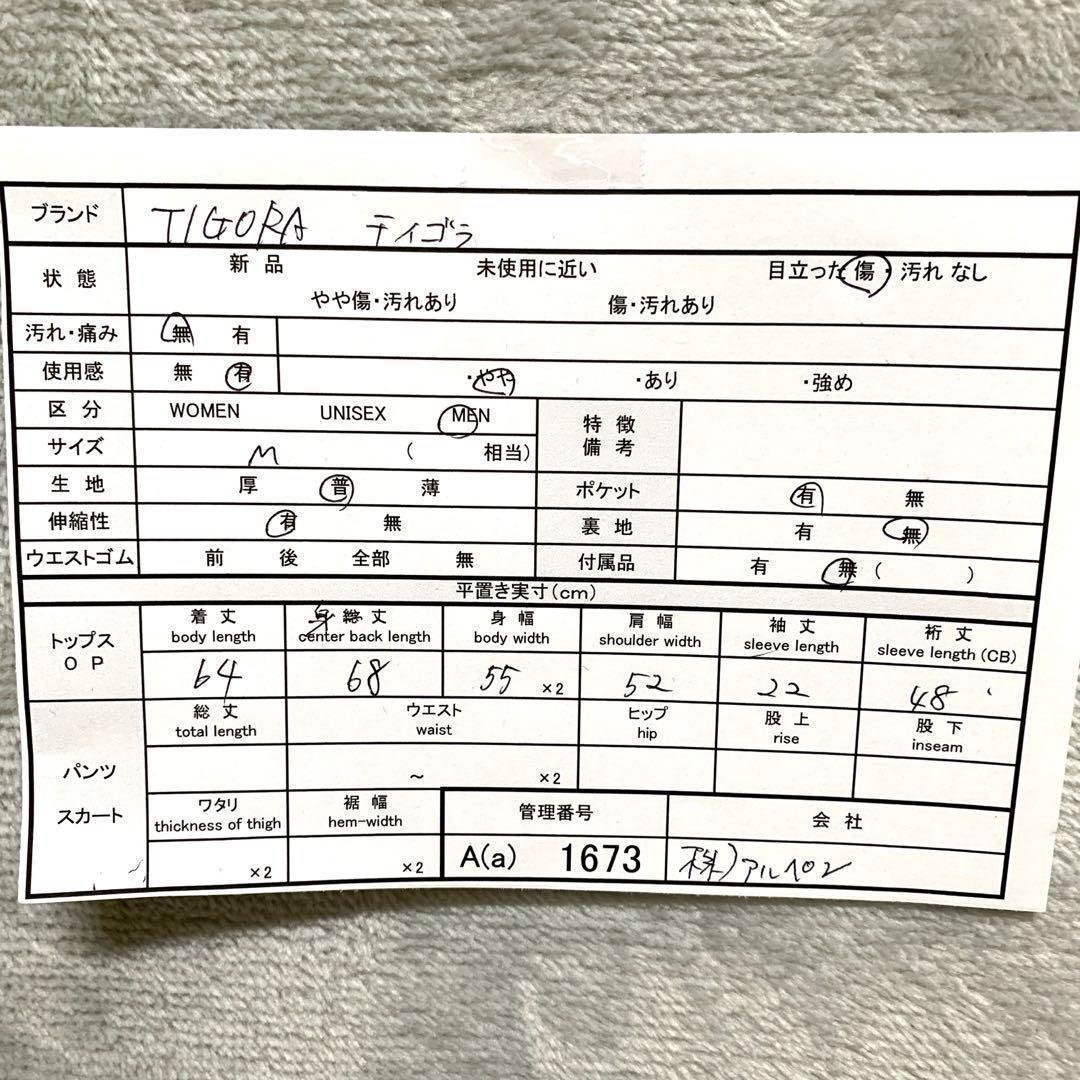 ブランド TIGORA ティゴラ
状態 新品 未使用に近い 目立った傷・汚れなし
やや傷・汚れあり 傷・汚れあり
汚れ・痛み 無 有
使用感 無 有 ・やや ・あり ・強め
区分 WOMEN UNISEX MEN 特徴
備考
サイズ M ( 相当)
生地 厚 普 薄 ポケット 有 無
伸縮性 有 無 裏地 有 無
ウエストゴム 前 後 全部 無 付属品 有 無 ( )
平置き実寸(cm)
トップス
OP
着丈 身総丈 身幅 肩幅 袖丈 裄丈
body length center back length body width shoulder width sleeve length sleeve length (CB)
64 68 55 ×2 52 22 48
パンツ
スカート
総丈 ウエスト ヒップ 股上 股下
total length waist hip rise inseam
~ ×2
ワタリ 裾幅 管理番号 会社
thickness of thigh hem-width
×2 ×2 A(a) 1673 株)アルペン